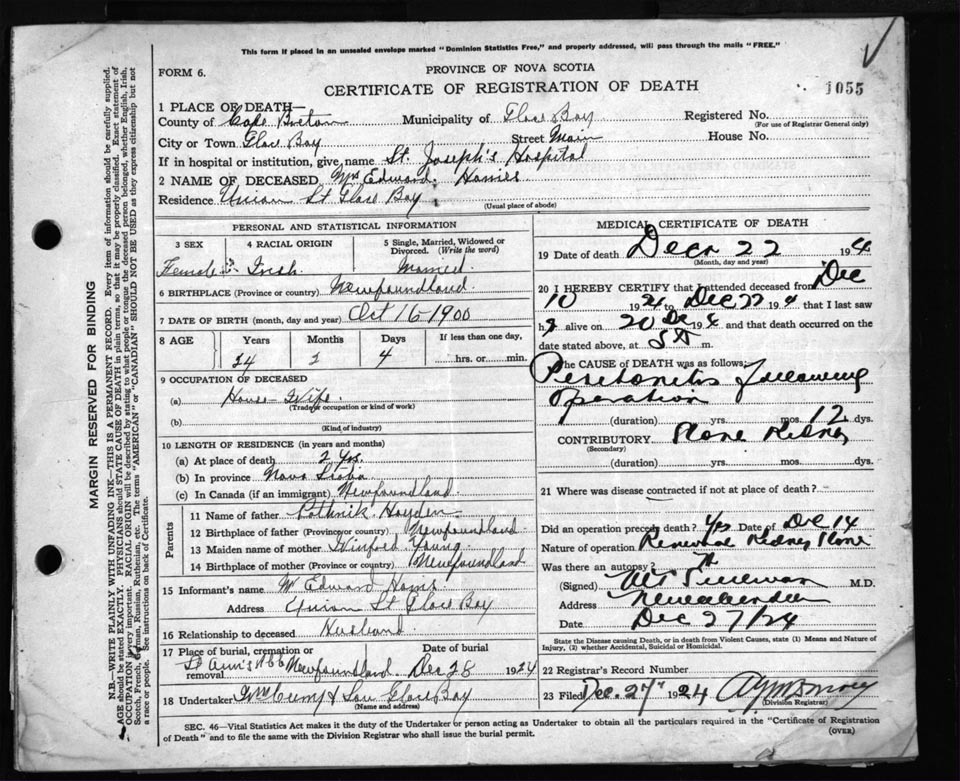 This form if placed in an unsealed envelope marked "Dominion Statistics Free," and properly addressed, will pass through the mails "FREE."
FORM 6.
PROVINCE OF NOVA SCOTIA
CERTIFICATE OF REGISTRATION OF DEATH
1055
1 PLACE OF DEATH—
County of Cape Breton Municipality of Glace Bay Registered No.
(For use of Registrar General only)
City or Town Glace Bay Street Main House No.
If in hospital or institution, give name St. Joseph's Hospital
2 NAME OF DECEASED Mrs Edward
Residence Union St Glace Bay
(Usual place of abode)
PERSONAL AND STATISTICAL INFORMATION
3 SEX 4 RACIAL ORIGIN 5 Single, Married, Widowed or Divorced. (Write the word)
Female Irish Married
6 BIRTHPLACE (Province or country) Newfoundland
7 DATE OF BIRTH (month, day and year) Oct 16-1900
8 AGE Years Months Days If less than one day,
24 2 4 hrs. or min.
9 OCCUPATION OF DECEASED
(a) House-Wife.
(Trade, occupation or kind of work)
(b)
(Kind of industry)
10 LENGTH OF RESIDENCE (in years and months)
(a) At place of death 2 yrs.
(b) In province Nova Scotia
(c) In Canada (if an immigrant) Newfoundland
Parents
11 Name of father Hayden
12 Birthplace of father (Province or country) Newfoundland
13 Maiden name of mother Young
14 Birthplace of mother (Province or country) Newfoundland
15 Informant's name Edward
Address Union St Glace Bay
16 Relationship to deceased Husband
17 Place of burial, cremation or removal Date of burial
St Ann's Newfoundland Dec 28 1924
18 Undertaker & Son Glace Bay
(Name and address)
MEDICAL CERTIFICATE OF DEATH
19 Date of death Dec 22 194
(Month, day and year)
20 I HEREBY CERTIFY that I attended deceased from Dec
10 1924 to Dec 22 194 that I last saw
h alive on 20 Dec 194 and that death occurred on the
date stated above, at 5 m.
The CAUSE OF DEATH was as follows:
Peritonitis following
operation
(duration) yrs. mos. 12 dys.
CONTRIBUTORY Stone Kidney
(Secondary)
(duration) yrs. mos. dys.
21 Where was disease contracted if not at place of death?
Did an operation precede death? Yes Date of Dec 14
Nature of operation Removal Kidney Stone
Was there an autopsy?
(Signed) M.D.
Address New Aberdeen
Dec 27/24
State the Disease causing Death, or in death from Violent Causes, state (1) Means and Nature of Injury, (2) whether Accidental, Suicidal or Homicidal.
22 Registrar's Record Number
23 Filed Dec. 27 1924
(Division Registrar)
SEC. 46—Vital Statistics Act makes it the duty of the Undertaker or person acting as Undertaker to obtain all the particulars required in the "Certificate of Registration
of Death" and to file the same with the Division Registrar who shall issue the burial permit.
(OVER)
MARGIN RESERVED FOR BINDING
N.B.—WRITE PLAINLY WITH UNFADING INK—THIS IS A PERMANENT RECORD. Every item of information should be carefully supplied.
AGE should be stated EXACTLY. PHYSICIANS should STATE CAUSE OF DEATH in plain terms, so that it may be properly classified. Exact statement of
OCCUPATION is very important. RACIAL ORIGIN will be described by stating to what people or tongue the deceased person belonged, whether English, Irish,
Scotch, French, German, Russian, Ruthenian, etc. The terms "AMERICAN" or "CANADIAN" SHOULD NOT BE USED as they express citizenship but not
a race or people. See instructions on back of Certificate.